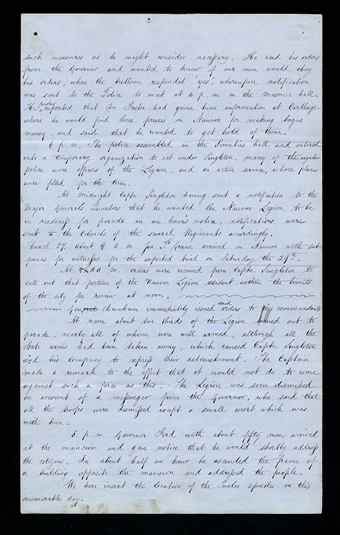 2
such measures as he might consider necessary. He read his orders
from the Governor and wanted to know if our men would obey
his orders, when the brethren responded yes, whereupon notification
was sent to the Police to meet at 6 p.m. in the Masonic hall.
He further reported that Dr Foster had given him information at Carthage
where he could find three presses in Nauvoo for making bogus
money, and said that he wanted to get hold of them.
6 p.m. The police assembled in the Seventies hall and entered
into a temporary organization to act under Singleton, many of the regular
police were officers of the Legion, and on active service, whose places
were filled for the time.
At midnight Capt Singleton having sent a notification to the
Major Generals Quarters that he wanted the Nauvoo Legion to be
in readiness for parade in an hour's notice, notifications were
sent to the Colonels of the several Regiments accordingly.
27. about 9 a.m. Jas. P. arrived in Nauvoo with sub-
poenas for witnesses for the expected trial on Saturday the 29th.
At a.m. orders were received from Captn. Singleton to
call out that portion of the Nauvoo Legion resident within the limits
of the city for review at noon.
Dunham immediately issued said orders to the commandants
At noon about two thirds of the Legion turned out to
parade, nearly all of whom were well armed; although all the
State arms had been taken away, which caused Captn. Singleton
and his company to express their astonishment. The Captain
made a remark to the effect that it would not do to come
against such a force as this. The Legion was soon dismissed
on account of a messenger from the Governor, who said that
all the troops were dismissed except a small escort which was
with him.
5 p.m. Governor Ford with about fifty men arrived
at the mansion and gave notice that he would shortly address
the citizens. In about half an hour he ascended the frame of
a building opposite the mansion and addressed the people.
We here insert the location of the Twelve Apostles on this
memorable day.